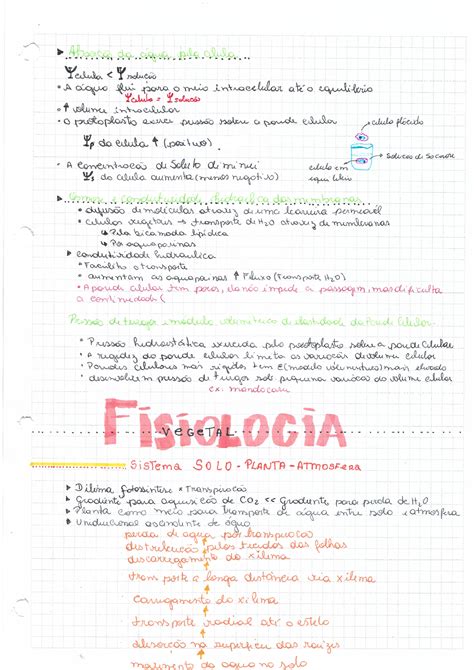 Absorção da água pela célula
Ψcelula < Ψsolução
• A água flui para o meio intracelular até o equilíbrio
Ψcelula = Ψsolução
• ↑ volume intracelular
• O protoplasto exerce pressão sobre a parede celular
célula flácida
Ψp da celula ↑ (positivo).
→ Solução de Sacarose
• A concentração de Soluto diminui
célula em
Ψs da celula aumenta (menos negativo)
equilíbrio
e condutividade hidraulica das membranas
• difusão de moléculas através de uma barreira permeável
• células vegetais → transporte de H2O através de membranas
↳ Pela bicamada lipídica
↳ Por aquaporinas
condutividade hidraulica
• Facilita o transporte
• aumentam as aquaporinas ↑ Fluxo (Transporte H2O)
• A parede celular tem poros, ela não impede a passagem, mas dificulta
a continuidade
Pressão de turgor e módulo volumétrico de elasticidade da Parede Celular.
• Pressão hidrostática exercida pelo protoplasto sobre a parede Celular
• A rigidez da parede celular limita as variações de volume celular
• Paredes celulares mais rígidas tem E (modelo volumétrico) mais elevado
• desenvolvem pressão de turgor sob pequena variação do volume celular
ex: mandacaru
FISIOLOGIA
VEGETAL
Sistema SOLO - PLANTA - ATMOSFERA
Dilema fotossíntese × Transpiração
Gradiente para aquisição de CO2 << Gradiente para perda de H2O
Planta como meio para transporte de água entre solo e atmosfera
Unidirecional ascendente de água
perda de água por transpiração
distribuição pelos tecidos das folhas
descarregamento do xilema
transporte a longa distância via xilema
Carregamento do xilema
transporte radial até o estelo
absorção na superfície das raízes
movimento da água no solo